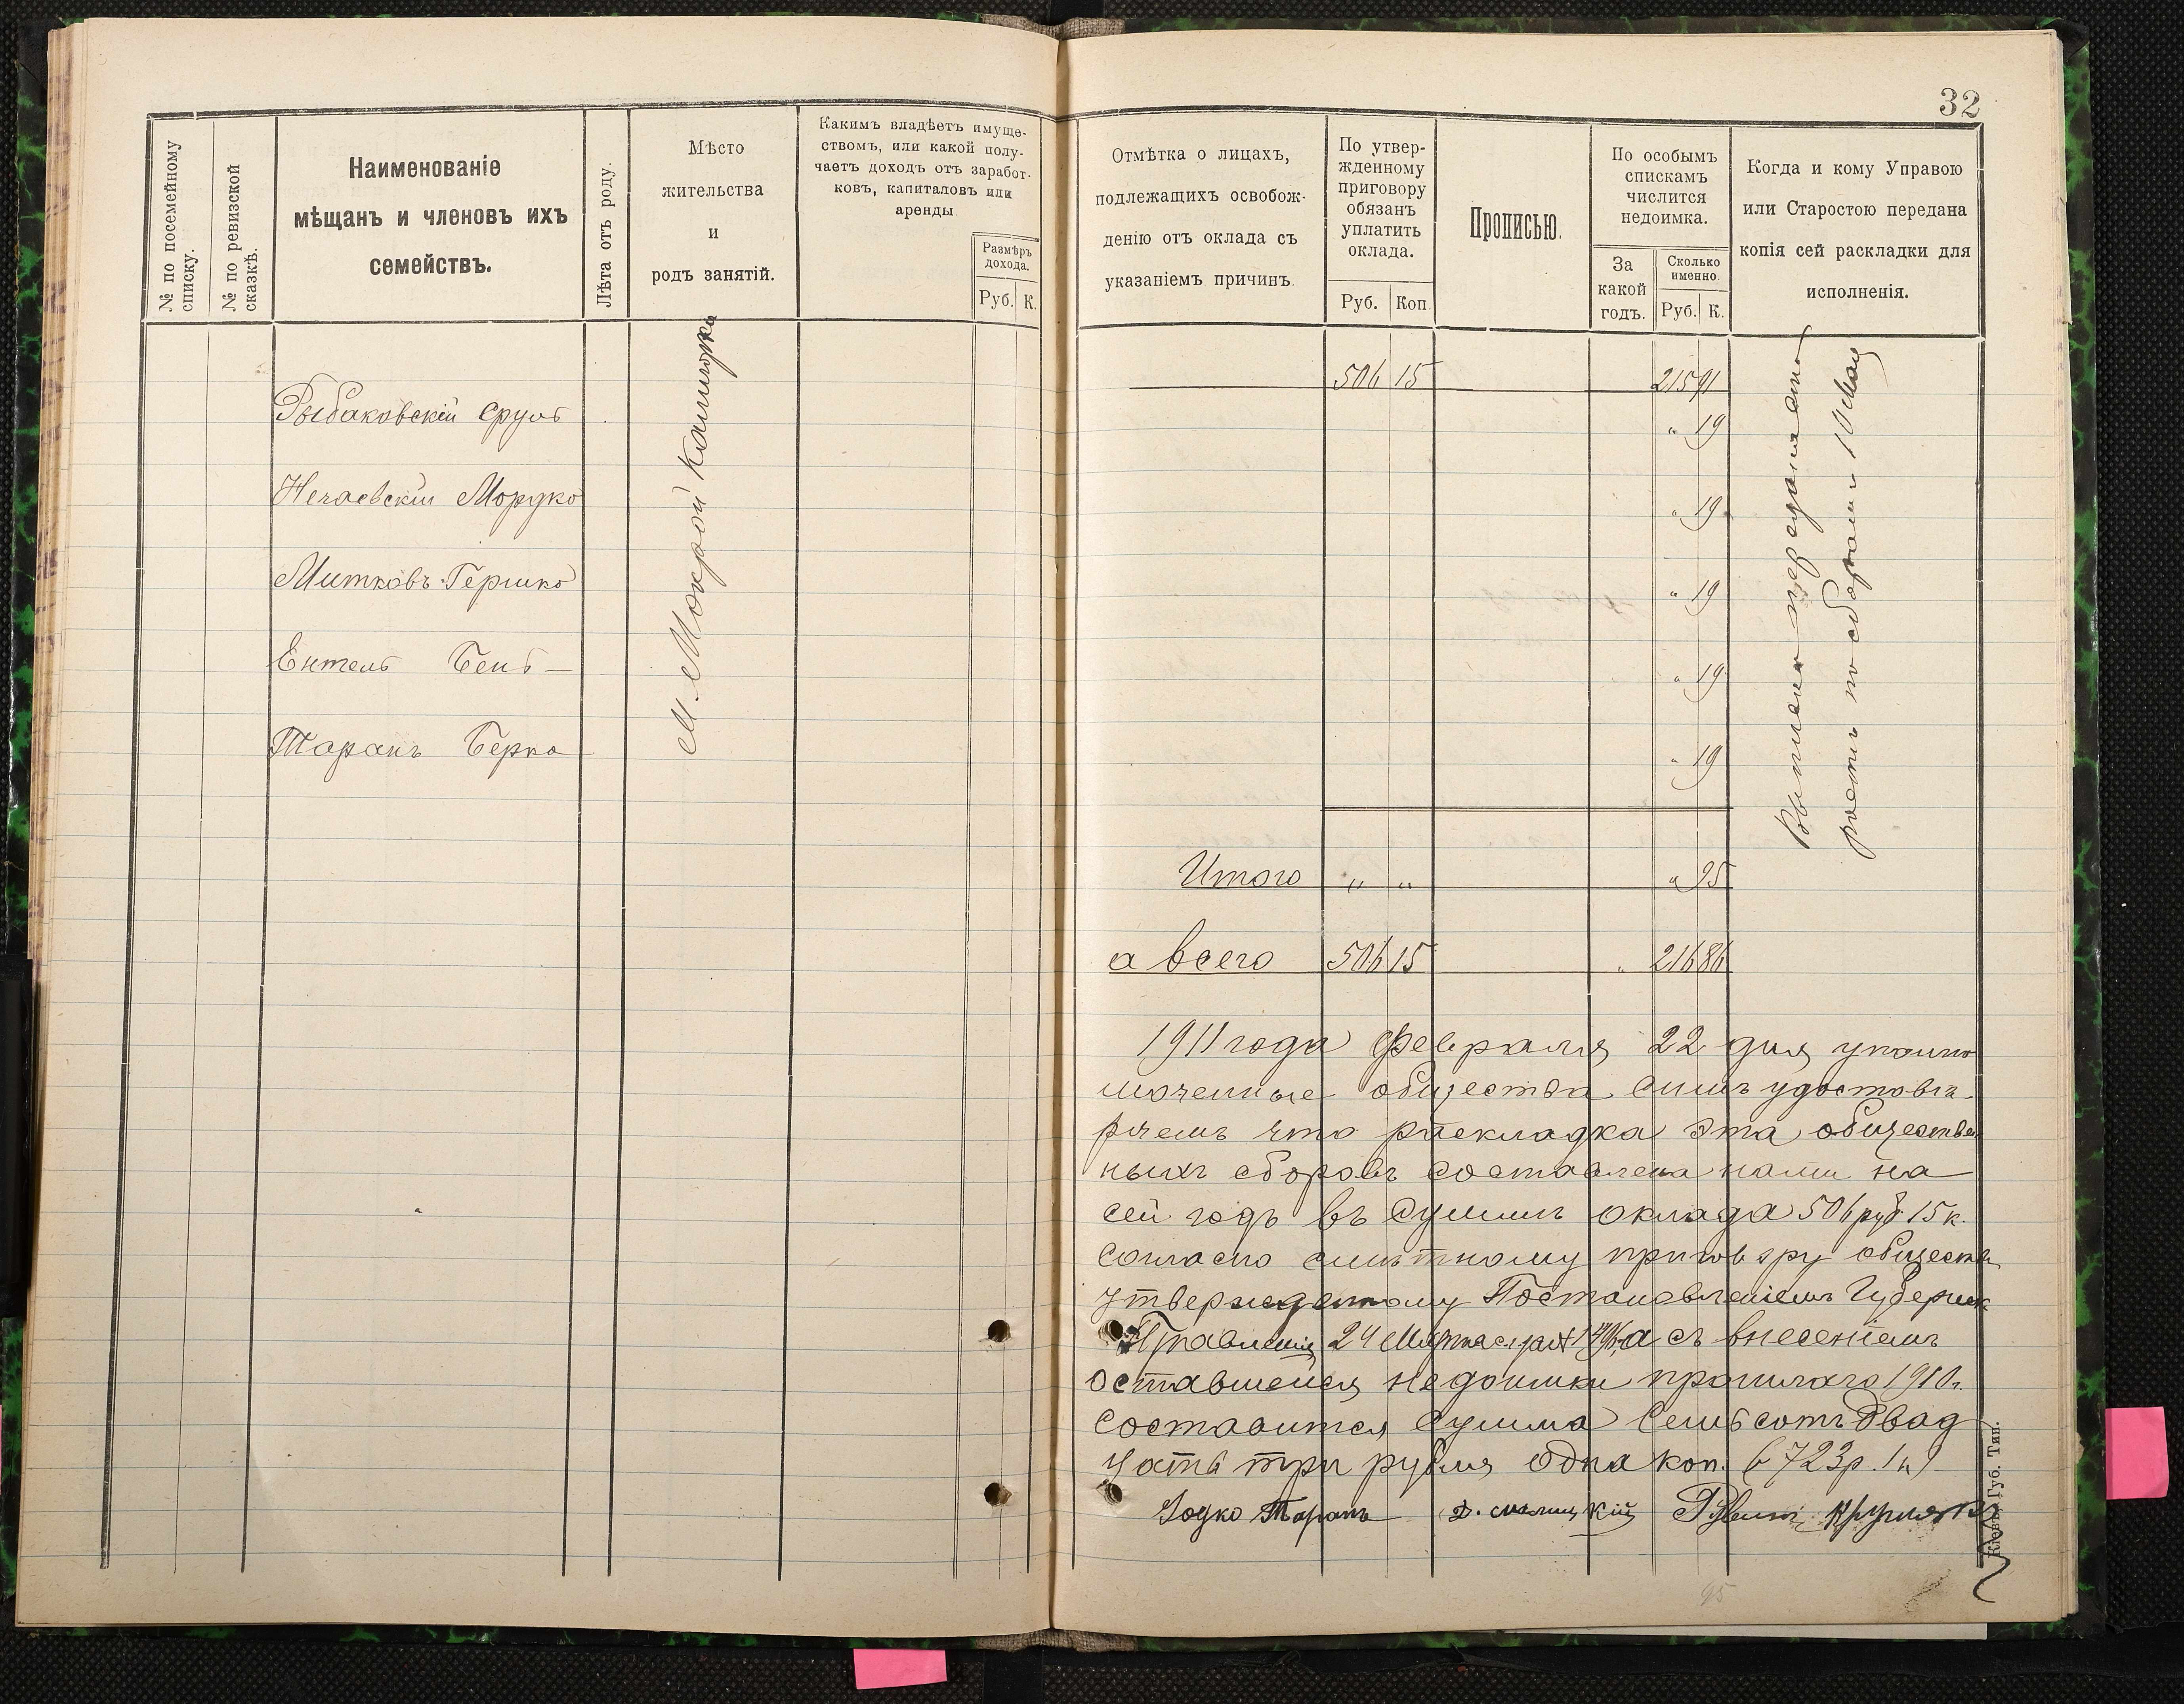 32
№ по посемейному
списку.
№ по ревизской
сказкѣ.
Наименованіе
мѣщанъ и членовъ ихъ
семействъ.
Лѣта отъ роду.
Мѣсто
жительства
и
родъ занятій.
Какимъ владѣетъ имуще-
ствомъ, или какой полу-
чаетъ доходъ отъ заработ-
ковъ, капиталовъ или
аренды.
Размѣръ
дохода.
Руб. К.
Рыбаковскій Сруль
Нечаевскій Мордко
Митковъ Гершко
Ентель Бенъ
Таранъ Берко
М. Мокрой Калигорки
Отмѣтка о лицахъ,
подлежащихъ освобож-
денію отъ оклада съ
указаніемъ причинъ.
По утвер-
жденному
приговору
обязанъ
уплатить
оклада.
Руб. Коп.
Прописью.
По особымъ
спискамъ
числится
недоимка.
За
какой
годъ.
Сколько
именно.
Руб. К.
Когда и кому Управою
или Старостою передана
копія сей раскладки для
исполненія.
506 15 215 91
" 19
" 19
" 19
" 19
" 19
Итого " " " 95
а всего 506 15 216 86
1911 года Февраля 22 дня уполно
моченные общества симъ удостовѣ-
ряемъ что раскладка эта обществен
ныхъ сборовъ составлена нами на
сей годъ въ суммѣ оклада 506 руб. 15 к.
согласно смѣтному приговору общества
утвержденному Постановленіемъ Губернск
Правленія 24 Марта с. г. а съ внесеніемъ
оставшейся недоимки прошлаго 1910 г.
составится сумма семьсотъ двад
цать три рубля одна коп. (723 р. 1 к)
Іодко Таранъ
95
Кіевъ, Губ. Тип.